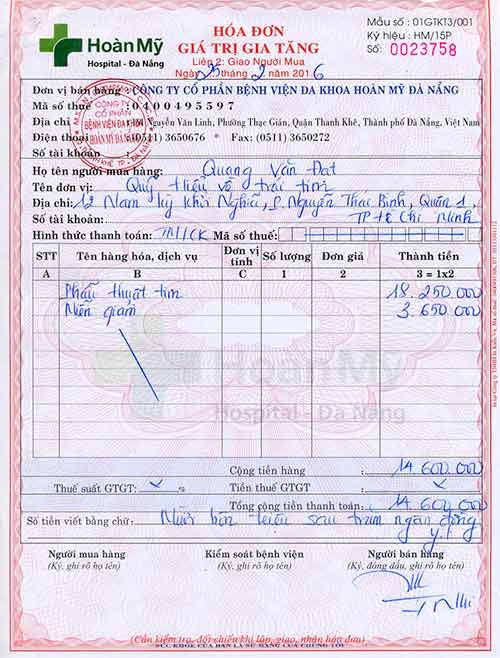 HoànMỹ
Hospital - Đà Nẵng
HÓA ĐƠN
GIÁ TRỊ GIA TĂNG
Liên 2: Giao Người Mua
Ngày 25 tháng 2 năm 2016
Mẫu số : 01GTKT3/001
Ký hiệu : HM/15P
Số: 0023758
Đơn vị bán hàng : CÔNG TY CỔ PHẦN BỆNH VIỆN ĐA KHOA HOÀN MỸ ĐÀ NẴNG
Mã số thuế : 0400495597
Địa chỉ : Nguyễn Văn Linh, Phường Thạc Gián, Quận Thanh Khê, Thành phố Đà Nẵng, Việt Nam
Điện thoại : (0511) 3650676 * Fax: (0511) 3650272
Số tài khoản
CÔNG TY
CỔ PHẦN
BỆNH VIỆN ĐA KHOA
HOÀN MỸ ĐÀ NẴNG
Họ tên người mua hàng: Quang Văn Đạt
Tên đơn vị: Quỹ thiếu vô trái tim
Địa chỉ: 12 Nam kỳ khởi Nghĩa, P. Nguyễn Thái Bình, Quận 1,
Số tài khoản: TP Hồ Chí Minh
Hình thức thanh toán: TM/CK Mã số thuế:
STT Tên hàng hóa, dịch vụ Đơn vị tính Số lượng Đơn giá Thành tiền
A B C 1 2 3 = 1x2
Phẫu thuật tim 18.250.000
Miễn giảm 3.650.000
HoànMỹ
Hospital - Đà Nẵng
Cộng tiền hàng : 14.600.000
Thuế suất GTGT: % Tiền thuế GTGT :
Tổng cộng tiền thanh toán: 14.600.000
Số tiền viết bằng chữ: Mười bốn triệu sáu trăm ngàn đồng
y.
Người mua hàng Kiểm soát bệnh viện Người bán hàng
(Ký, ghi rõ họ tên) (Ký, ghi rõ họ tên) (Ký, đóng dấu, ghi rõ họ tên)
(Cần kiểm tra, đối chiếu khi lập, giao, nhận hóa đơn)
SỨC KHỎE CỦA BẠN LÀ SỨ MẠNG CỦA CHÚNG TÔI